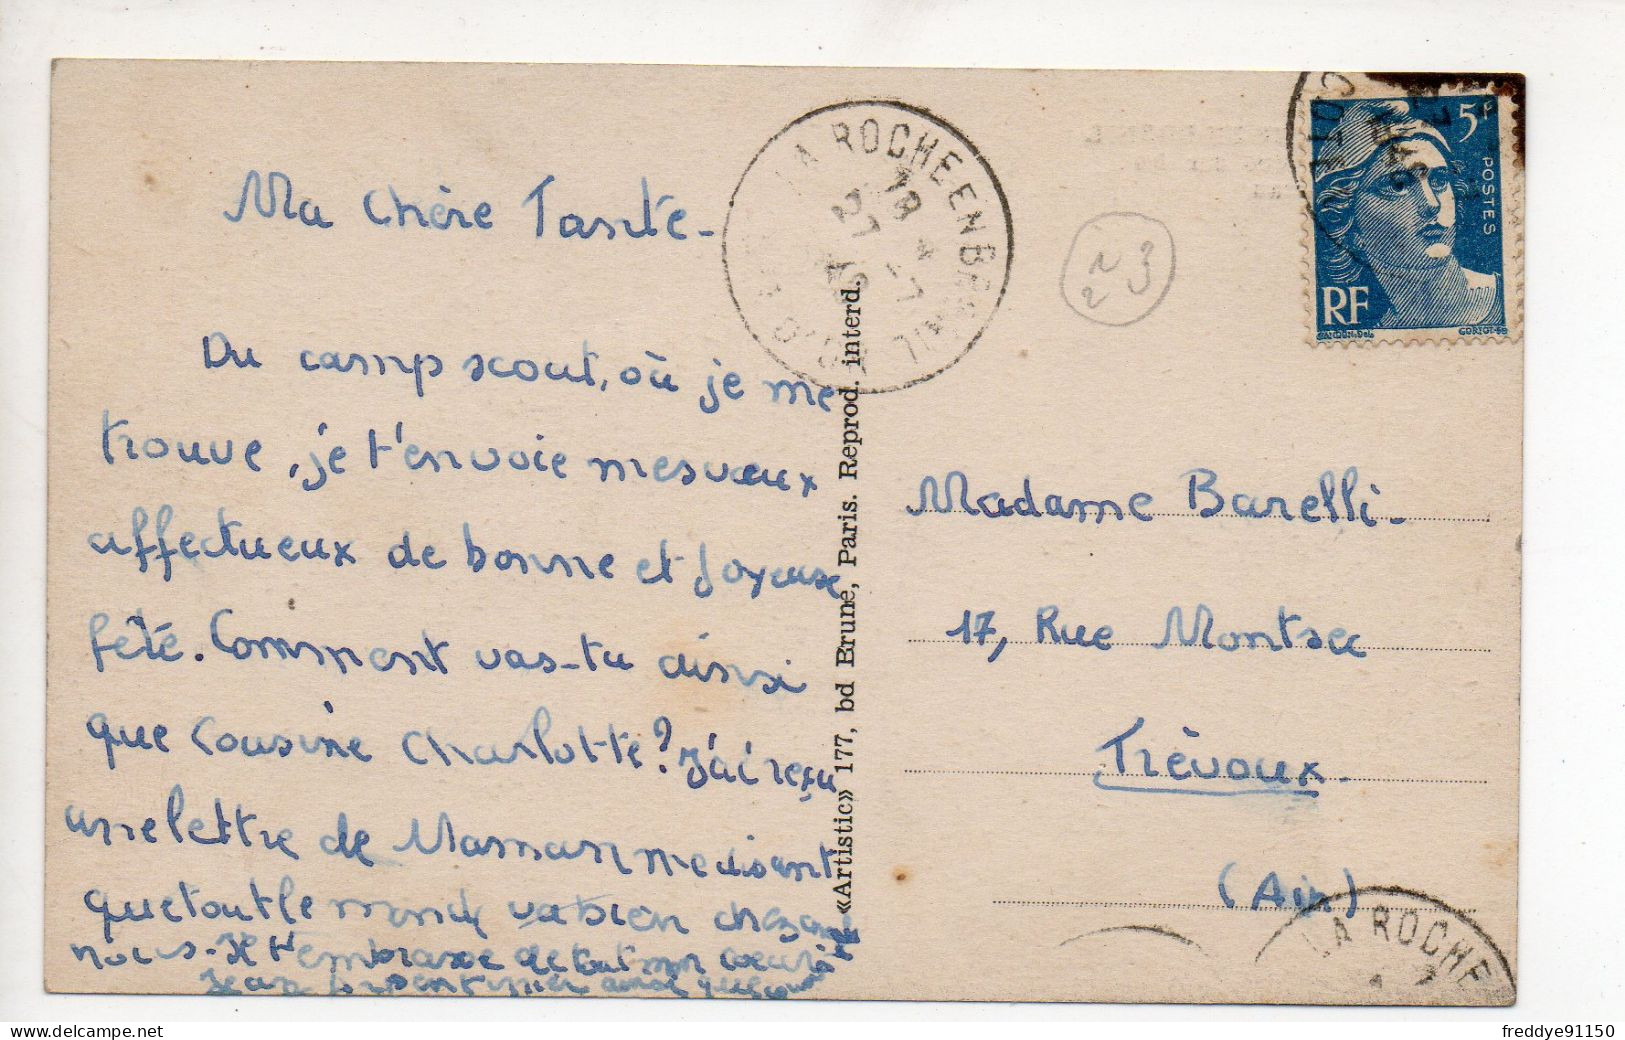 Ma Chère Tante-
Du camp scout, où je me
trouve, je t'envoie mes vœux
affectueux de bonne et joyeuse
fête. Comment vas-tu ainsi
que Cousine Charlotte? J'ai reçu
une lettre de Maman me disant
que tout le monde va bien chez
nous. Je t'embrasse de tout mon cœur
Jean
LA ROCHE EN BRENIL
CÔTE D'OR
18 *
27 -7
«Artistic» 177, bd Brune, Paris. Reprod. interd.
23
5F
POSTES
RF
Madame Barelli-
17, Rue Montsec
Trévoux-
(Ain)
LA ROCHE
freddye91150